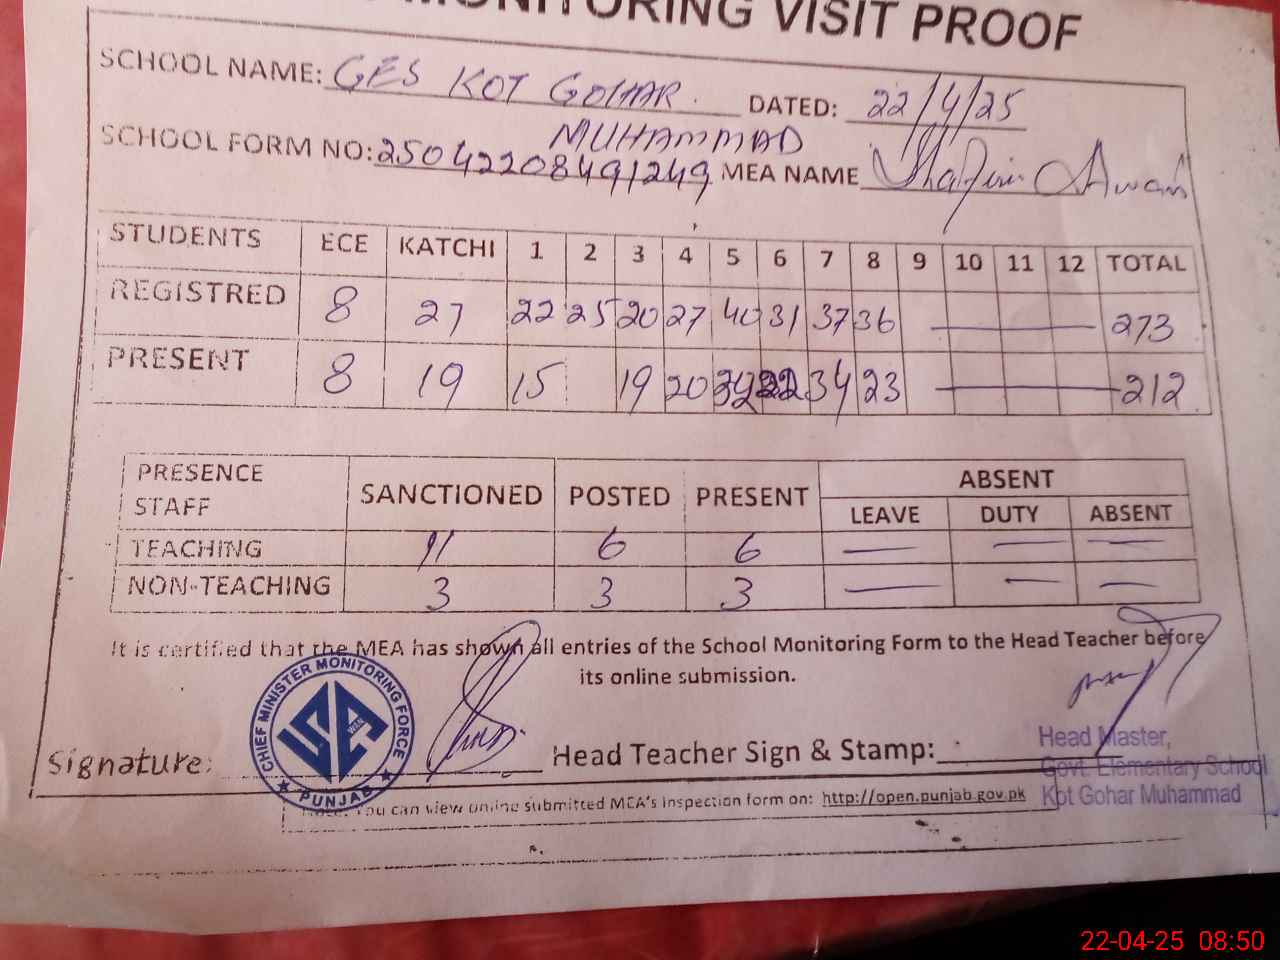 MONITORING VISIT PROOF
SCHOOL NAME: GES KOT GOHAR DATED: 22/4/25
MUHAMMAD
SCHOOL FORM NO: 25042208491249 MEA NAME Awan
STUDENTS ECE KATCHI 1 2 3 4 5 6 7 8 9 10 11 12 TOTAL
REGISTRED 8 27 22 25 20 27 40 31 37 36 — 273
PRESENT 8 19 15 19 20 32 22 34 23 — 212
PRESENCE STAFF SANCTIONED POSTED PRESENT ABSENT
LEAVE DUTY ABSENT
TEACHING 11 6 6 — — —
NON-TEACHING 3 3 3 — — —
It is certified that the MEA has shown all entries of the School Monitoring Form to the Head Teacher before
its online submission.
CHIEF MINISTER MONITORING FORCE
PUNJAB
Signature: Head Teacher Sign & Stamp:
Head Master,
Govt. Elementary School
Kot Gohar Muhammad
Note: You can view online submitted MEA's inspection form on: http://open.punjab.gov.pk
22-04-25 08:50